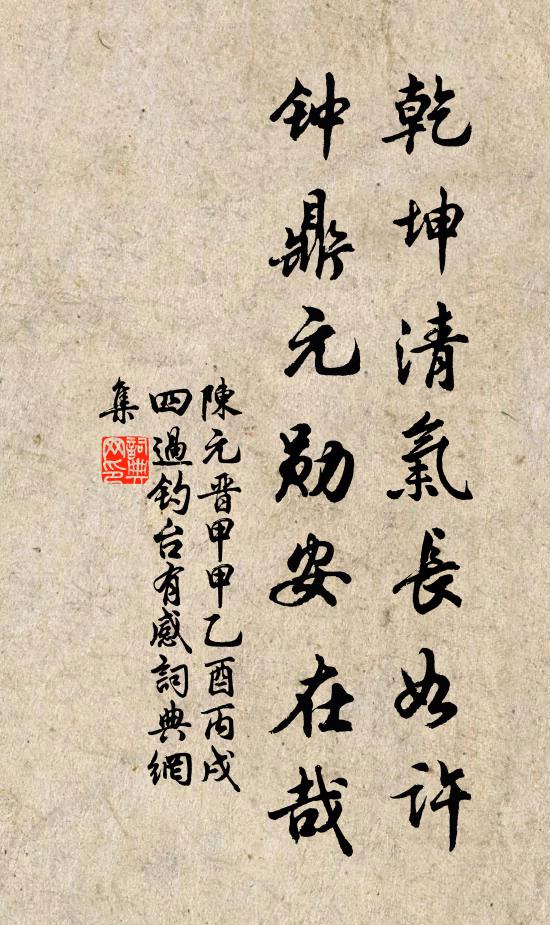 乾坤清氣長如许
钟鼎元勋安在哉
陳元晋甲甲乙酉丙戌
四過钓台有感詞典網
集
詞典
网印